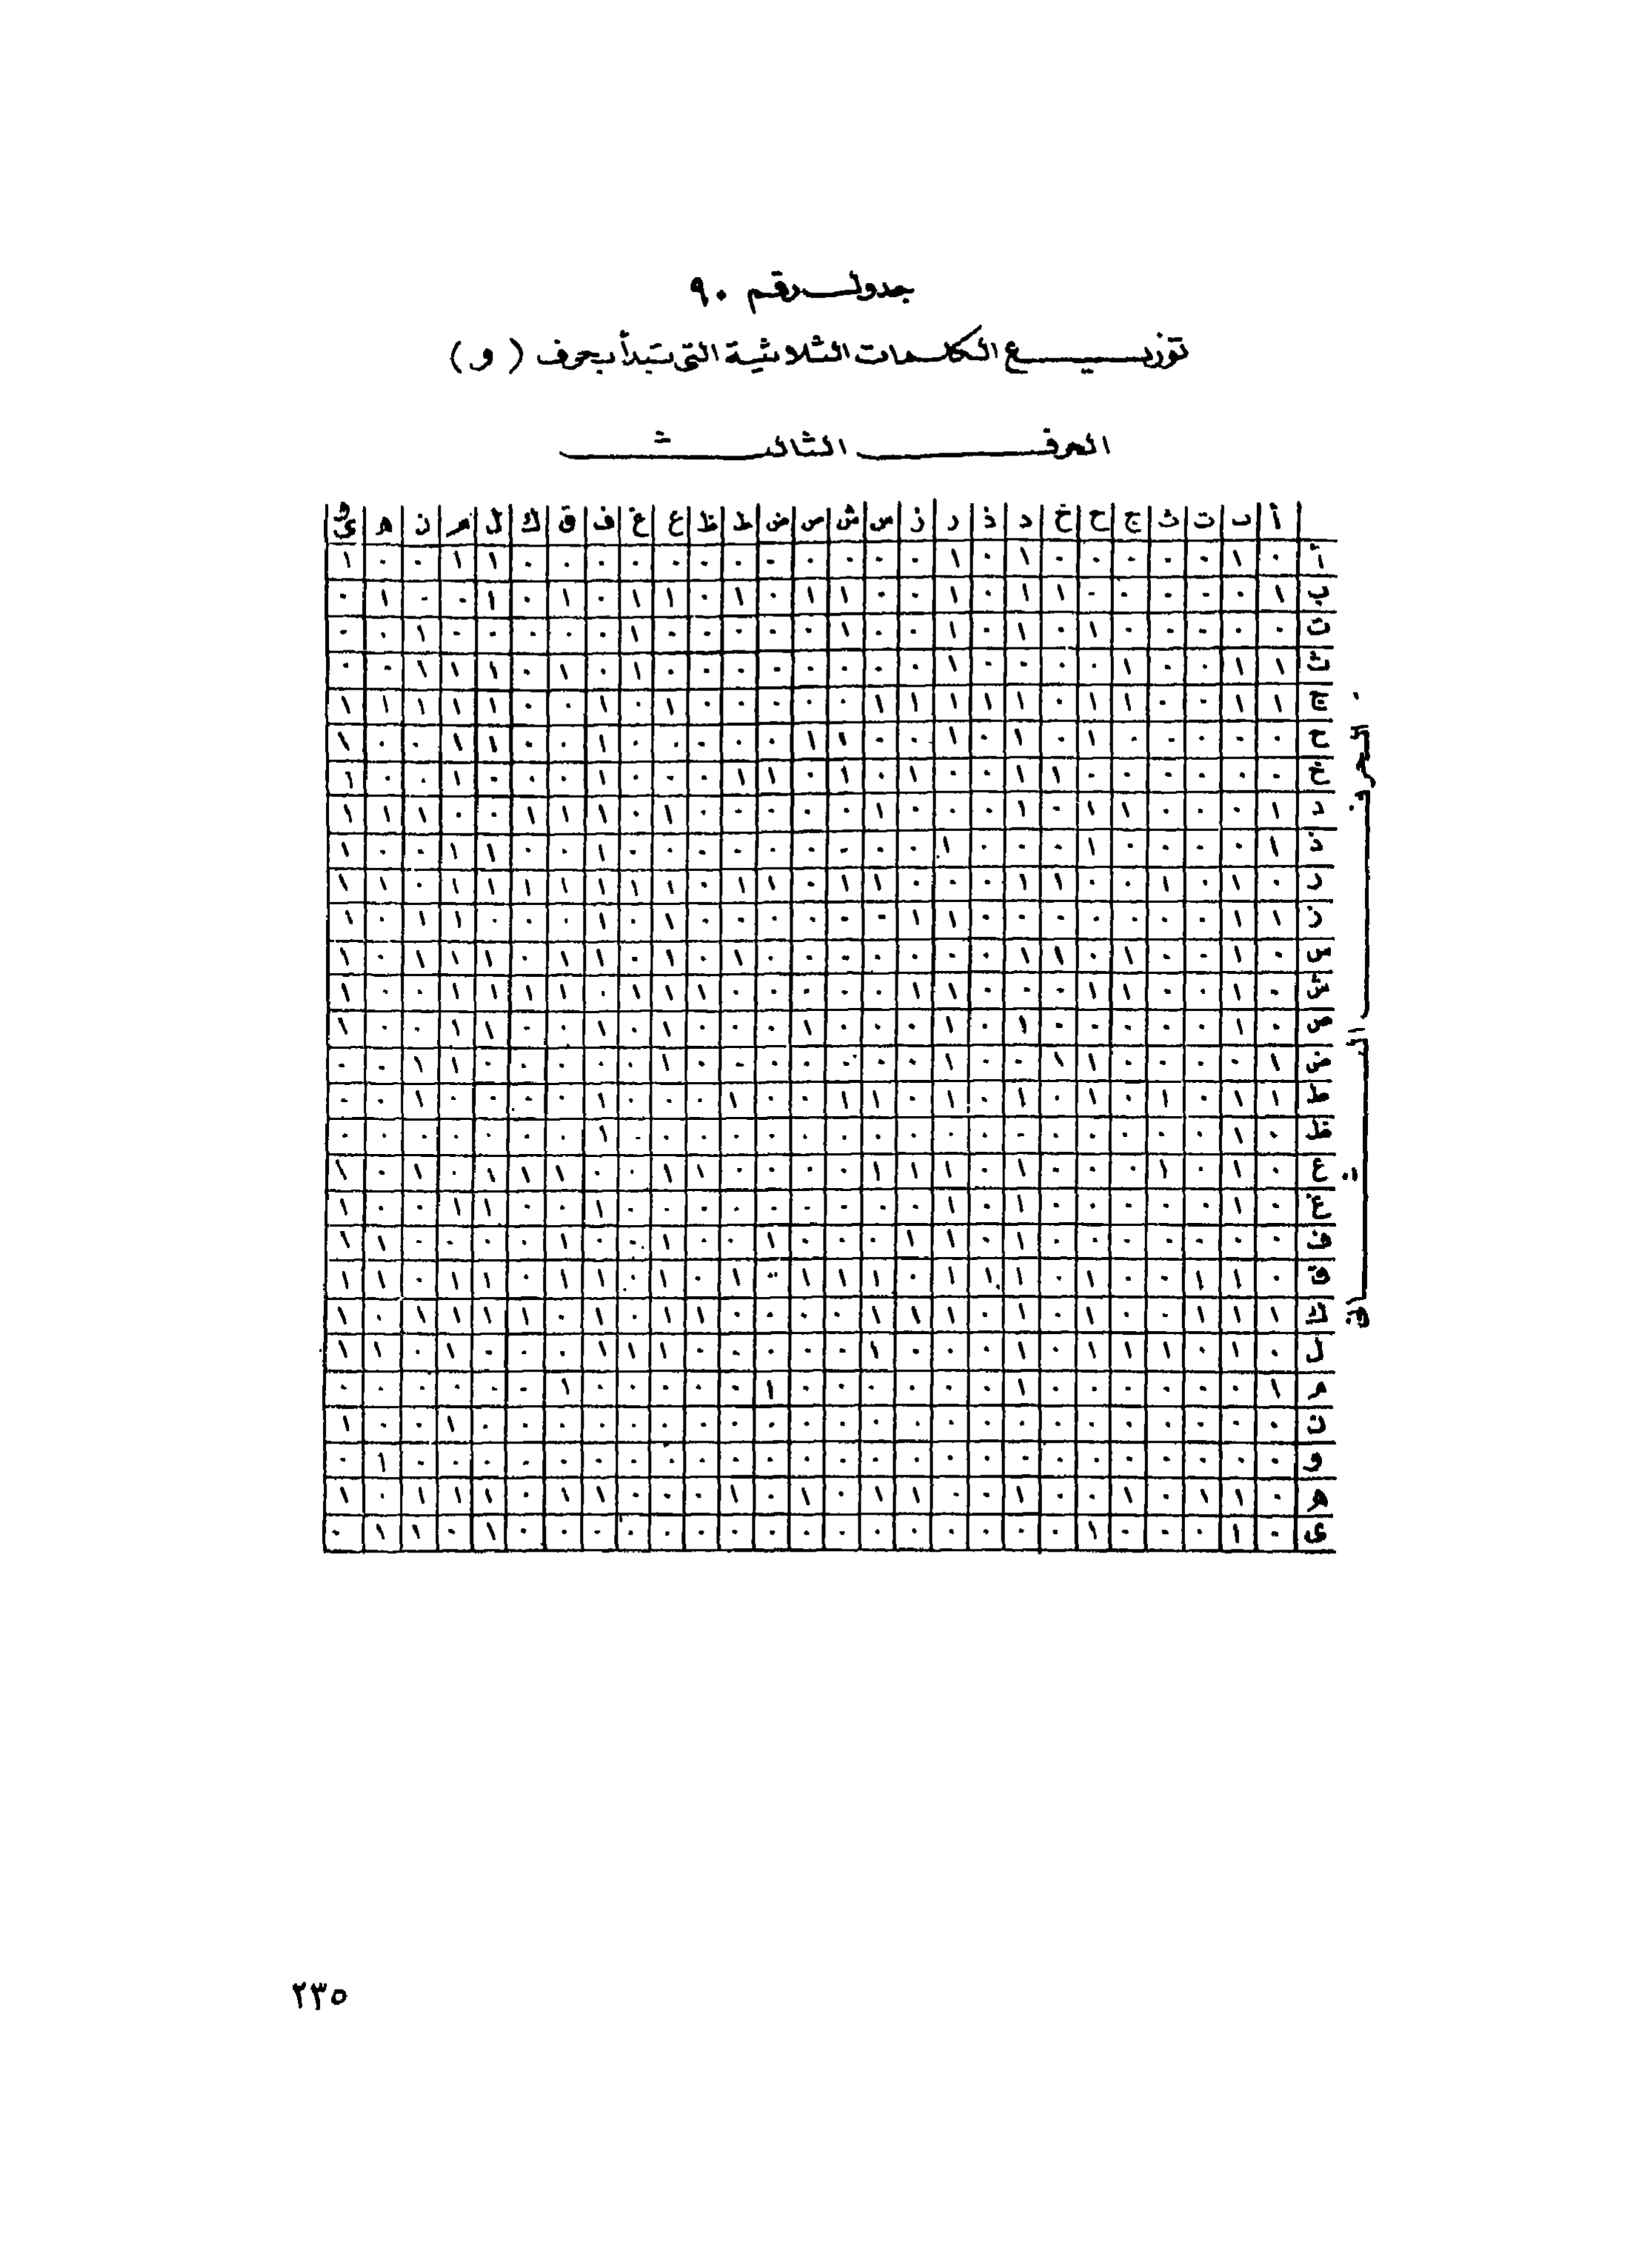 جدول رقم ٩٠
توزيع الكلمات الثلاثية التي تبدأ بحرف (و)
الحرف الثالث
أ ب ت ث ج ح خ د ذ ر ز س ش ص ض ط ظ ع غ ف ق ك ل م ن ه وى
الحرف الثاني
أ ٠ ١ ٠ ٠ ٠ ٠ ٠ ١ ٠ ١ ٠ ٠ ٠ ٠ ٠ ٠ ٠ ٠ ٠ ٠ ٠ ٠ ١ ١ ٠ ٠ ١
ب ١ ٠ ٠ ٠ ٠ ٠ ١ ١ ٠ ١ ٠ ٠ ١ ١ ٠ ١ ٠ ١ ١ ٠ ١ ٠ ١ ٠ ٠ ١ ٠
ت ٠ ٠ ٠ ٠ ٠ ١ ٠ ١ ٠ ١ ٠ ٠ ١ ٠ ٠ ٠ ٠ ٠ ١ ٠ ٠ ٠ ٠ ٠ ١ ٠ ٠
ث ١ ١ ٠ ٠ ١ ٠ ٠ ٠ ٠ ١ ٠ ٠ ٠ ٠ ٠ ٠ ٠ ٠ ١ ٠ ١ ٠ ١ ١ ١ ٠ ٠
ج ١ ١ ٠ ٠ ١ ١ ٠ ١ ١ ١ ١ ١ ٠ ٠ ٠ ٠ ٠ ١ ٠ ١ ٠ ٠ ١ ١ ١ ١ ١
ح ٠ ٠ ٠ ٠ ٠ ١ ٠ ١ ٠ ١ ٠ ٠ ١ ١ ٠ ٠ ٠ ٠ ٠ ١ ٠ ٠ ١ ١ ٠ ٠ ١
خ ٠ ٠ ٠ ٠ ٠ ٠ ١ ١ ٠ ٠ ١ ٠ ١ ٠ ١ ١ ٠ ٠ ٠ ١ ٠ ٠ ٠ ١ ٠ ٠ ١
د ١ ٠ ٠ ٠ ١ ١ ٠ ١ ٠ ٠ ٠ ١ ٠ ٠ ٠ ٠ ٠ ١ ٠ ١ ١ ١ ٠ ٠ ١ ١ ١
ذ ١ ٠ ٠ ٠ ٠ ١ ٠ ٠ ٠ ١ ٠ ٠ ٠ ٠ ٠ ٠ ٠ ٠ ٠ ١ ٠ ٠ ١ ١ ٠ ٠ ١
ر ٠ ١ ٠ ١ ٠ ٠ ١ ١ ٠ ٠ ٠ ١ ١ ٠ ١ ١ ٠ ١ ١ ١ ١ ١ ١ ١ ٠ ١ ١
ز ١ ١ ٠ ٠ ٠ ٠ ٠ ٠ ٠ ١ ١ ٠ ٠ ٠ ٠ ٠ ٠ ١ ٠ ١ ٠ ٠ ٠ ١ ١ ٠ ١
س ٠ ١ ٠ ٠ ١ ٠ ١ ١ ٠ ٠ ٠ ٠ ٠ ٠ ٠ ١ ٠ ١ ٠ ١ ١ ٠ ١ ١ ١ ٠ ١
ش ٠ ١ ٠ ٠ ١ ١ ٠ ٠ ٠ ١ ١ ٠ ٠ ٠ ٠ ٠ ١ ١ ١ ٠ ١ ١ ١ ١ ٠ ٠ ١
ص ٠ ١ ٠ ٠ ٠ ٠ ٠ ١ ٠ ١ ٠ ٠ ٠ ١ ٠ ٠ ٠ ١ ٠ ١ ٠ ٠ ١ ١ ٠ ٠ ١
ض ١ ٠ ٠ ٠ ٠ ١ ١ ٠ ٠ ١ ٠ ٠ ٠ ٠ ٠ ٠ ٠ ١ ٠ ٠ ٠ ٠ ٠ ١ ١ ٠ ٠
ط ١ ١ ٠ ١ ٠ ١ ٠ ١ ٠ ١ ٠ ١ ١ ٠ ٠ ١ ٠ ٠ ٠ ١ ٠ ٠ ٠ ٠ ١ ٠ ٠
ظ ٠ ١ ٠ ٠ ٠ ٠ ٠ ٠ ٠ ٠ ٠ ٠ ٠ ٠ ٠ ٠ ٠ ٠ ٠ ١ ٠ ٠ ٠ ٠ ٠ ٠ ٠
ع ٠ ١ ٠ ١ ٠ ٠ ٠ ١ ٠ ١ ١ ١ ٠ ٠ ٠ ٠ ١ ١ ٠ ٠ ١ ١ ١ ٠ ١ ٠ ١
غ ٠ ١ ٠ ٠ ٠ ٠ ٠ ١ ٠ ١ ٠ ٠ ٠ ٠ ٠ ٠ ٠ ٠ ٠ ١ ٠ ٠ ١ ١ ٠ ٠ ١
ف ٠ ٠ ٠ ٠ ٠ ٠ ٠ ١ ٠ ١ ١ ٠ ٠ ٠ ١ ٠ ٠ ١ ٠ ٠ ١ ٠ ٠ ٠ ٠ ١ ١
ق ٠ ١ ١ ٠ ٠ ١ ٠ ١ ١ ١ ٠ ١ ١ ١ ٠ ١ ٠ ١ ٠ ١ ١ ٠ ١ ١ ٠ ١ ١
ك ١ ١ ١ ٠ ٠ ١ ٠ ١ ٠ ١ ١ ١ ٠ ٠ ٠ ٠ ١ ١ ٠ ١ ٠ ١ ١ ١ ١ ٠ ١
ل ٠ ١ ٠ ١ ١ ١ ٠ ١ ٠ ٠ ٠ ١ ٠ ٠ ٠ ٠ ٠ ١ ١ ١ ٠ ٠ ٠ ١ ٠ ١ ١
م ١ ٠ ٠ ٠ ٠ ٠ ٠ ١ ٠ ٠ ٠ ٠ ٠ ٠ ١ ٠ ٠ ٠ ٠ ٠ ١ ٠ ٠ ٠ ٠ ٠ ٠
ن ٠ ٠ ٠ ٠ ٠ ٠ ٠ ٠ ٠ ٠ ٠ ٠ ٠ ٠ ٠ ٠ ٠ ٠ ٠ ٠ ٠ ٠ ٠ ١ ٠ ٠ ١
و ٠ ٠ ٠ ٠ ٠ ٠ ٠ ٠ ٠ ٠ ٠ ٠ ٠ ٠ ٠ ٠ ٠ ٠ ٠ ٠ ٠ ٠ ٠ ٠ ٠ ١ ٠
ه ٠ ١ ١ ٠ ١ ٠ ٠ ١ ٠ ٠ ١ ١ ٠ ١ ٠ ١ ٠ ٠ ٠ ١ ١ ٠ ١ ١ ١ ٠ ١
ى ٠ ١ ٠ ٠ ٠ ١ ٠ ٠ ٠ ٠ ٠ ٠ ٠ ٠ ٠ ٠ ٠ ٠ ٠ ٠ ٠ ٠ ١ ٠ ١ ١ ٠
٢٣٥